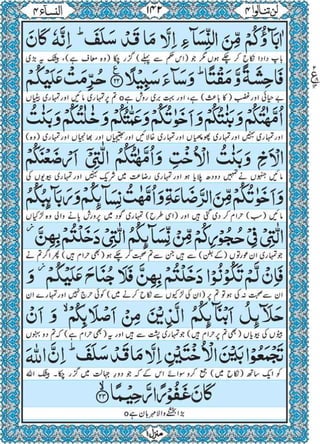 لن تنالوا ٤ ١٤٢ النسآء ٤
اٰبَآؤُكُمْ مِّنَ النِّسَآءِ اِلَّا مَا قَدْ سَلَفَ ؕ اِنَّهٗ كَانَ
باپ دادا نکاح کر چکے ہوں مگر جو (اس حکم سے پہلے) گزر چکا (وہ معاف ہے)، بیشک یہ بڑی
فَاحِشَةً وَّمَقْتًا ؕ وَسَآءَ سَبِیْلًا ۲۲ حُرِّمَتْ عَلَیْكُمْ
بے حیائی اور غضب (کا باعث) ہے، اور بہت بری روش ہے o تم پر تمہاری مائیں اور تمہاری بیٹیاں
اُمَّهٰتُكُمْ وَبَنٰتُكُمْ وَاَخَوٰتُكُمْ وَعَمّٰتُكُمْ وَخٰلٰتُكُمْ وَبَنٰتُ
اور تمہاری بہنیں اور تمہاری پھوپھیاں اور تمہاری خالائیں اور بھتیجیاں اور بھانجیاں اور تمہاری (وہ)
الْاَخِ وَبَنٰتُ الْاُخْتِ وَاُمَّهٰتُكُمُ الّٰتِیْۤ اَرْضَعْنَكُمْ
مائیں جنہوں نے تمہیں دودھ پلایا ہو اور تمہاری رضاعت میں شریک بہنیں اور تمہاری بیویوں کی
وَاَخَوٰتُكُمْ مِّنَ الرَّضَاعَةِ وَاُمَّهٰتُ نِسَآىِٕكُمْ وَرَبَآىِٕبُكُمُ
مائیں (سب) حرام کر دی گئی ہیں، اور (اسی طرح) تمہاری گود میں پرورش پانے والی وہ لڑکیاں
الّٰتِیْ فِیْ حُجُوْرِكُمْ مِّنْ نِّسَآىِٕكُمُ الّٰتِیْ دَخَلْتُمْ بِهِنَّ ؗ
جو تمہاری ان عورتوں (کے بطن) سے ہیں جن سے تم صحبت کر چکے ہو (بھی حرام ہیں) پھر اگر تم نے
فَاِنْ لَّمْ تَكُوْنُوْا دَخَلْتُمْ بِهِنَّ فَلَا جُنَاحَ عَلَیْكُمْ ؗ وَ
ان سے صحبت نہ کی ہو تو تم پر (ان کی لڑکیوں سے نکاح کرنے میں) کوئی حرج نہیں، اور تمہارے ان
حَلَآىِٕلُ اَبْنَآىِٕكُمُ الَّذِیْنَ مِنْ اَصْلَابِكُمْ ۙ وَ اَنْ
بیٹوں کی بیویاں (بھی تم پر حرام ہیں) جو تمہاری پشت سے ہیں، اور یہ (بھی حرام ہے) کہ تم دو بہنوں
تَجْمَعُوْا بَیْنَ الْاُخْتَیْنِ اِلَّا مَا قَدْ سَلَفَ ؕ اِنَّ اللّٰهَ
کو ایک ساتھ (نکاح میں) جمع کرو سوائے اس کے کہ جو دورِ جہالت میں گزر چکا۔ بیشک اللہ
كَانَ غَفُوْرًا رَّحِیْمًا ۲۳
بڑا بخشنے والا مہربان ہے o
منزل ١